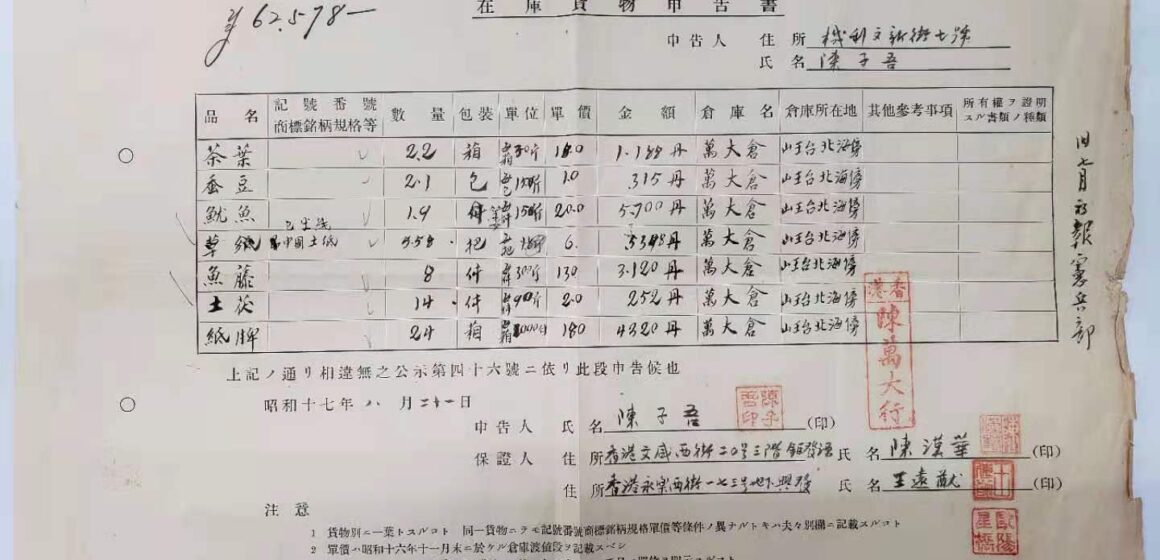 ¥62.578—
在庫貨物申告書
申告人 住所 機利文新街七號
氏名 陳子吾
品名 記號番號商標銘柄規格等 數量 包裝 單位 單價 金額 倉庫名 倉庫所在地 其他參考事項 所有權ヲ證明スル書類ノ種類
茶葉 22 箱 1.188円 萬大倉 山王台北海傍
蚕豆 21 包 1.0 315円 萬大倉 山王台北海傍
魷魚 19 件 20.0 5.700円 萬大倉 山王台北海傍
草紙 中國土紙 6. 萬大倉 山王台北海傍
魚藤 8 件 130 3.120円 萬大倉 山王台北海傍
土茯 14 件 2.0 252円 萬大倉 山王台北海傍
紙牌 24 箱 180 4320円 萬大倉 山王台北海傍
旧七月初報憲兵部
香港陳萬大行
上記ノ通リ相違無之公示第四十六號ニ依リ此段申告候也
昭和十七年八月二十一日
申告人 氏名 陳子吾 (印)
保證人 住所 香港文咸西街二0号三階 氏名 陳漢華 (印)
住所 香港永樂西街一七三号地下興發 氏名 王遠猷 (印)
歐陽星橋
注意
1 貨物別ニ一葉トスルコト 同一貨物ニテモ記號番號商標銘柄規格單價等條件ノ異ナルトキハ夫々別欄ニ記載スルコト
2 單價ハ昭和十六年十一月末ニ於ケル倉庫渡値段ヲ記載スベシ